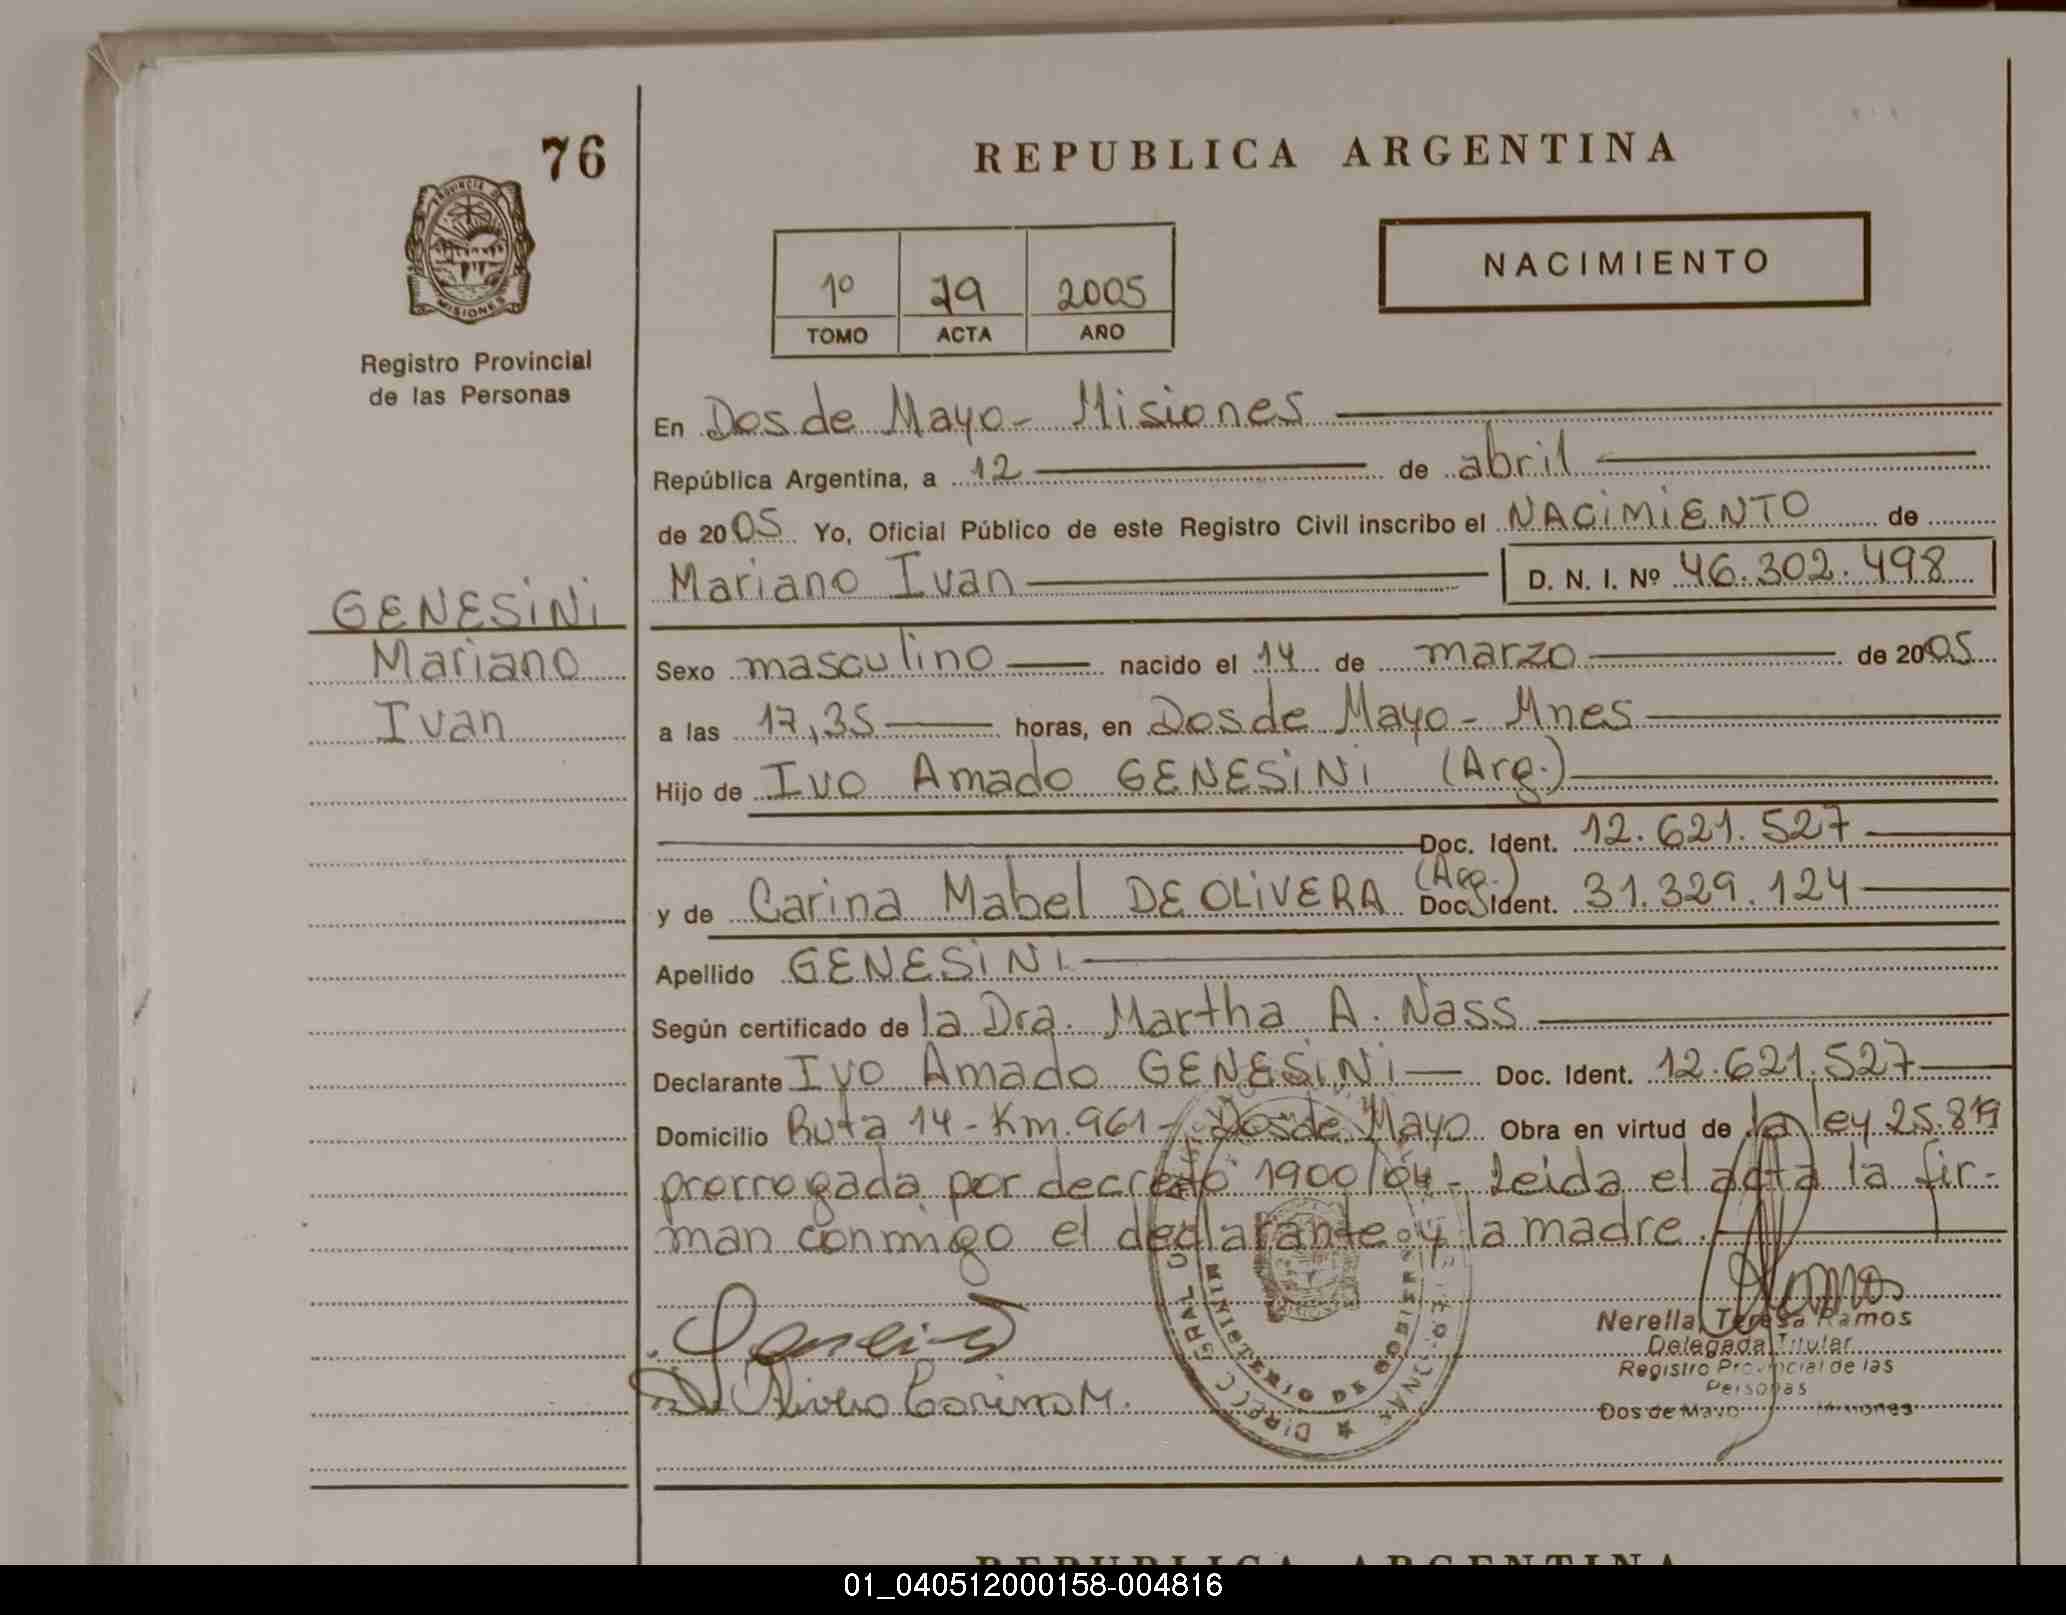 76
REPUBLICA ARGENTINA
PROVINCIA DE
MISIONES
Registro Provincial
de las Personas
1º 79 2005
TOMO ACTA AÑO
NACIMIENTO
En Dos de Mayo - Misiones
República Argentina, a 12 de abril
de 2005 Yo, Oficial Público de este Registro Civil inscribo el NACIMIENTO de
Mariano Ivan D. N. I. Nº 46.302.498
GENESINI
Mariano
Ivan
Sexo masculino nacido el 14 de marzo de 2005
a las 17,35 horas, en Dos de Mayo - Mnes
Hijo de Ivo Amado GENESINI (Arg.)
Doc. Ident. 12.621.527
y de Carina Mabel DE OLIVERA (Arg.) Doc. Ident. 31.329.124
Apellido GENESINI
Según certificado de la Dra. Martha A. Nass
Declarante Ivo Amado GENESINI Doc. Ident. 12.621.527
Domicilio Ruta 14 - Km. 961 - Dos de Mayo Obra en virtud de la ley 25.819
prorrogada por decreto 1900/04 - Leida el acta la fir-
man conmigo el declarante y la madre.
De Olivera Carina M.
Nerella Teresa Ramos
Delegada Titular
Registro Provincial de las
Personas
Dos de Mayo Misiones
MINISTERIO DE GOBIERNO
REPUBLICA ARGENTINA
01_040512000158-004816